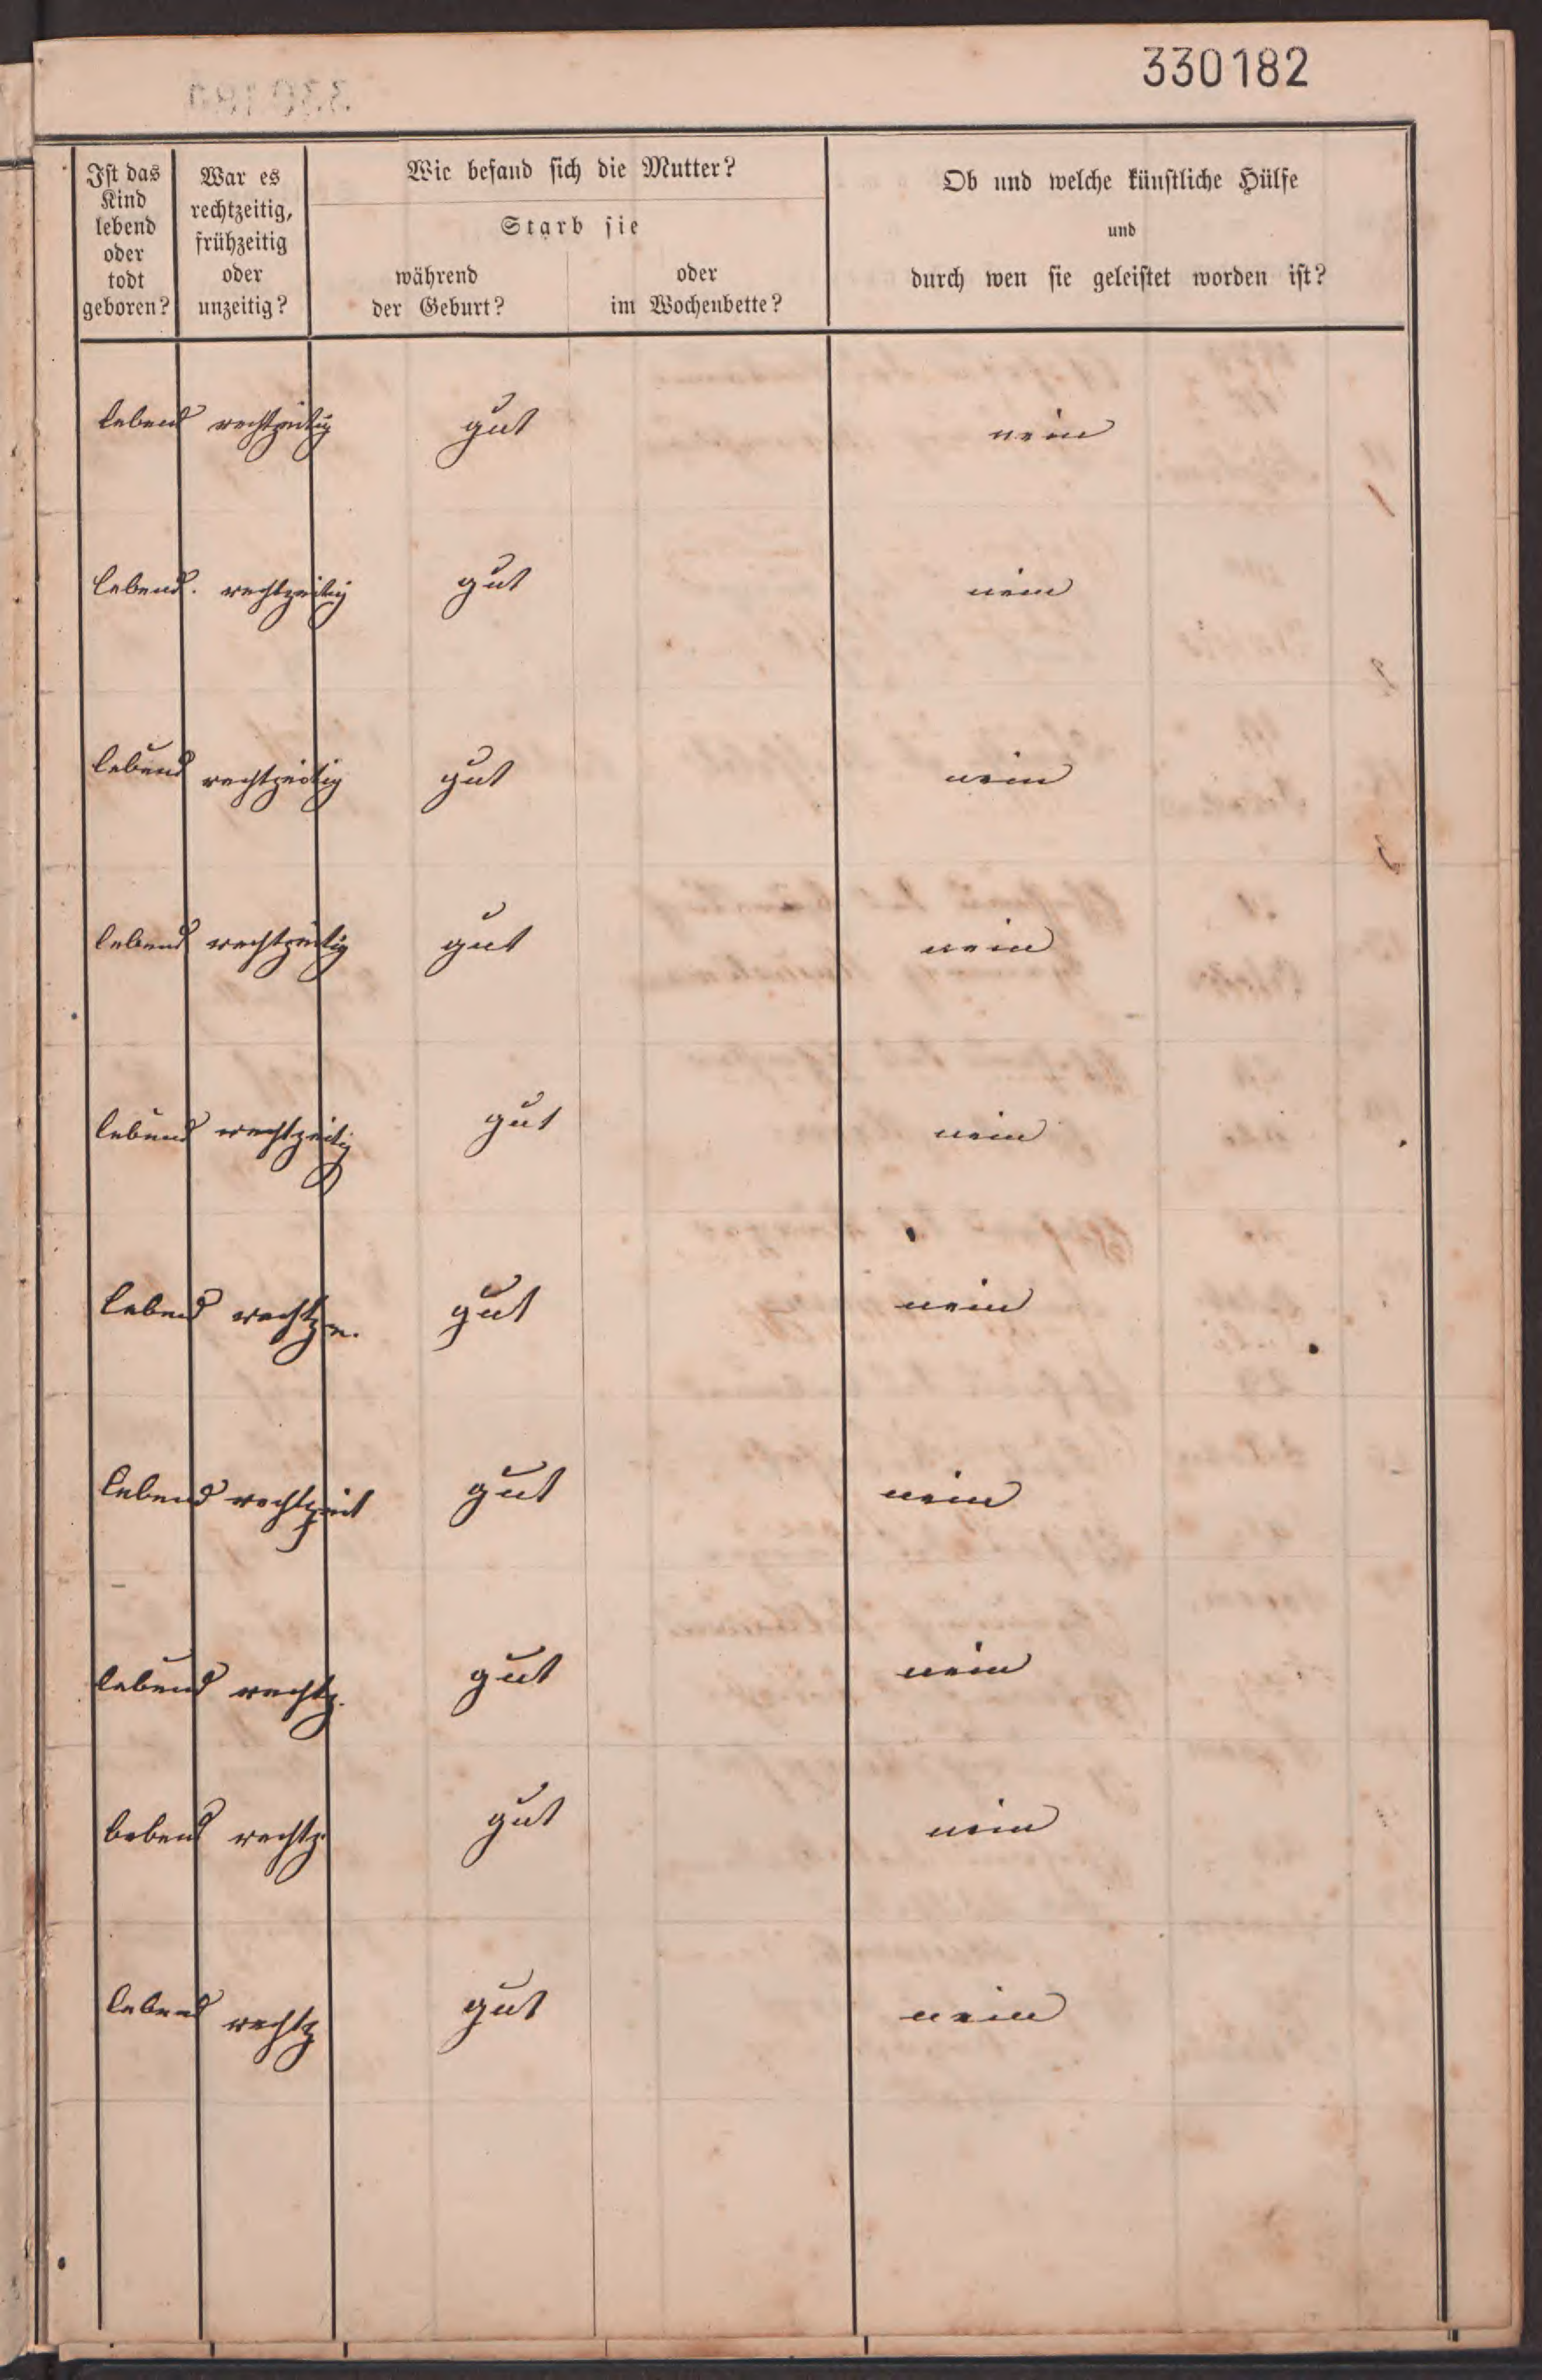 330182
Ist das
Kind
lebend
oder
todt
geboren?
War es
rechtzeitig,
frühzeitig
oder
unzeitig?
Wie befand sich die Mutter?
Starb sie
während
der Geburt?
oder
im Wochenbette?
Ob und welche künstliche Hülfe
und
durch wen sie geleistet worden ist?
lebend rechtzeitig gut nein
lebend. rechtzeitig gut nein
lebend rechtzeitig gut nein
lebend rechtzeitig gut nein
lebend rechtzeitig gut nein
lebend rechtze. gut nein
lebend rechtzeit gut nein
lebend rechtz. gut nein
lebend rechtz. gut nein
lebend rechtz gut nein